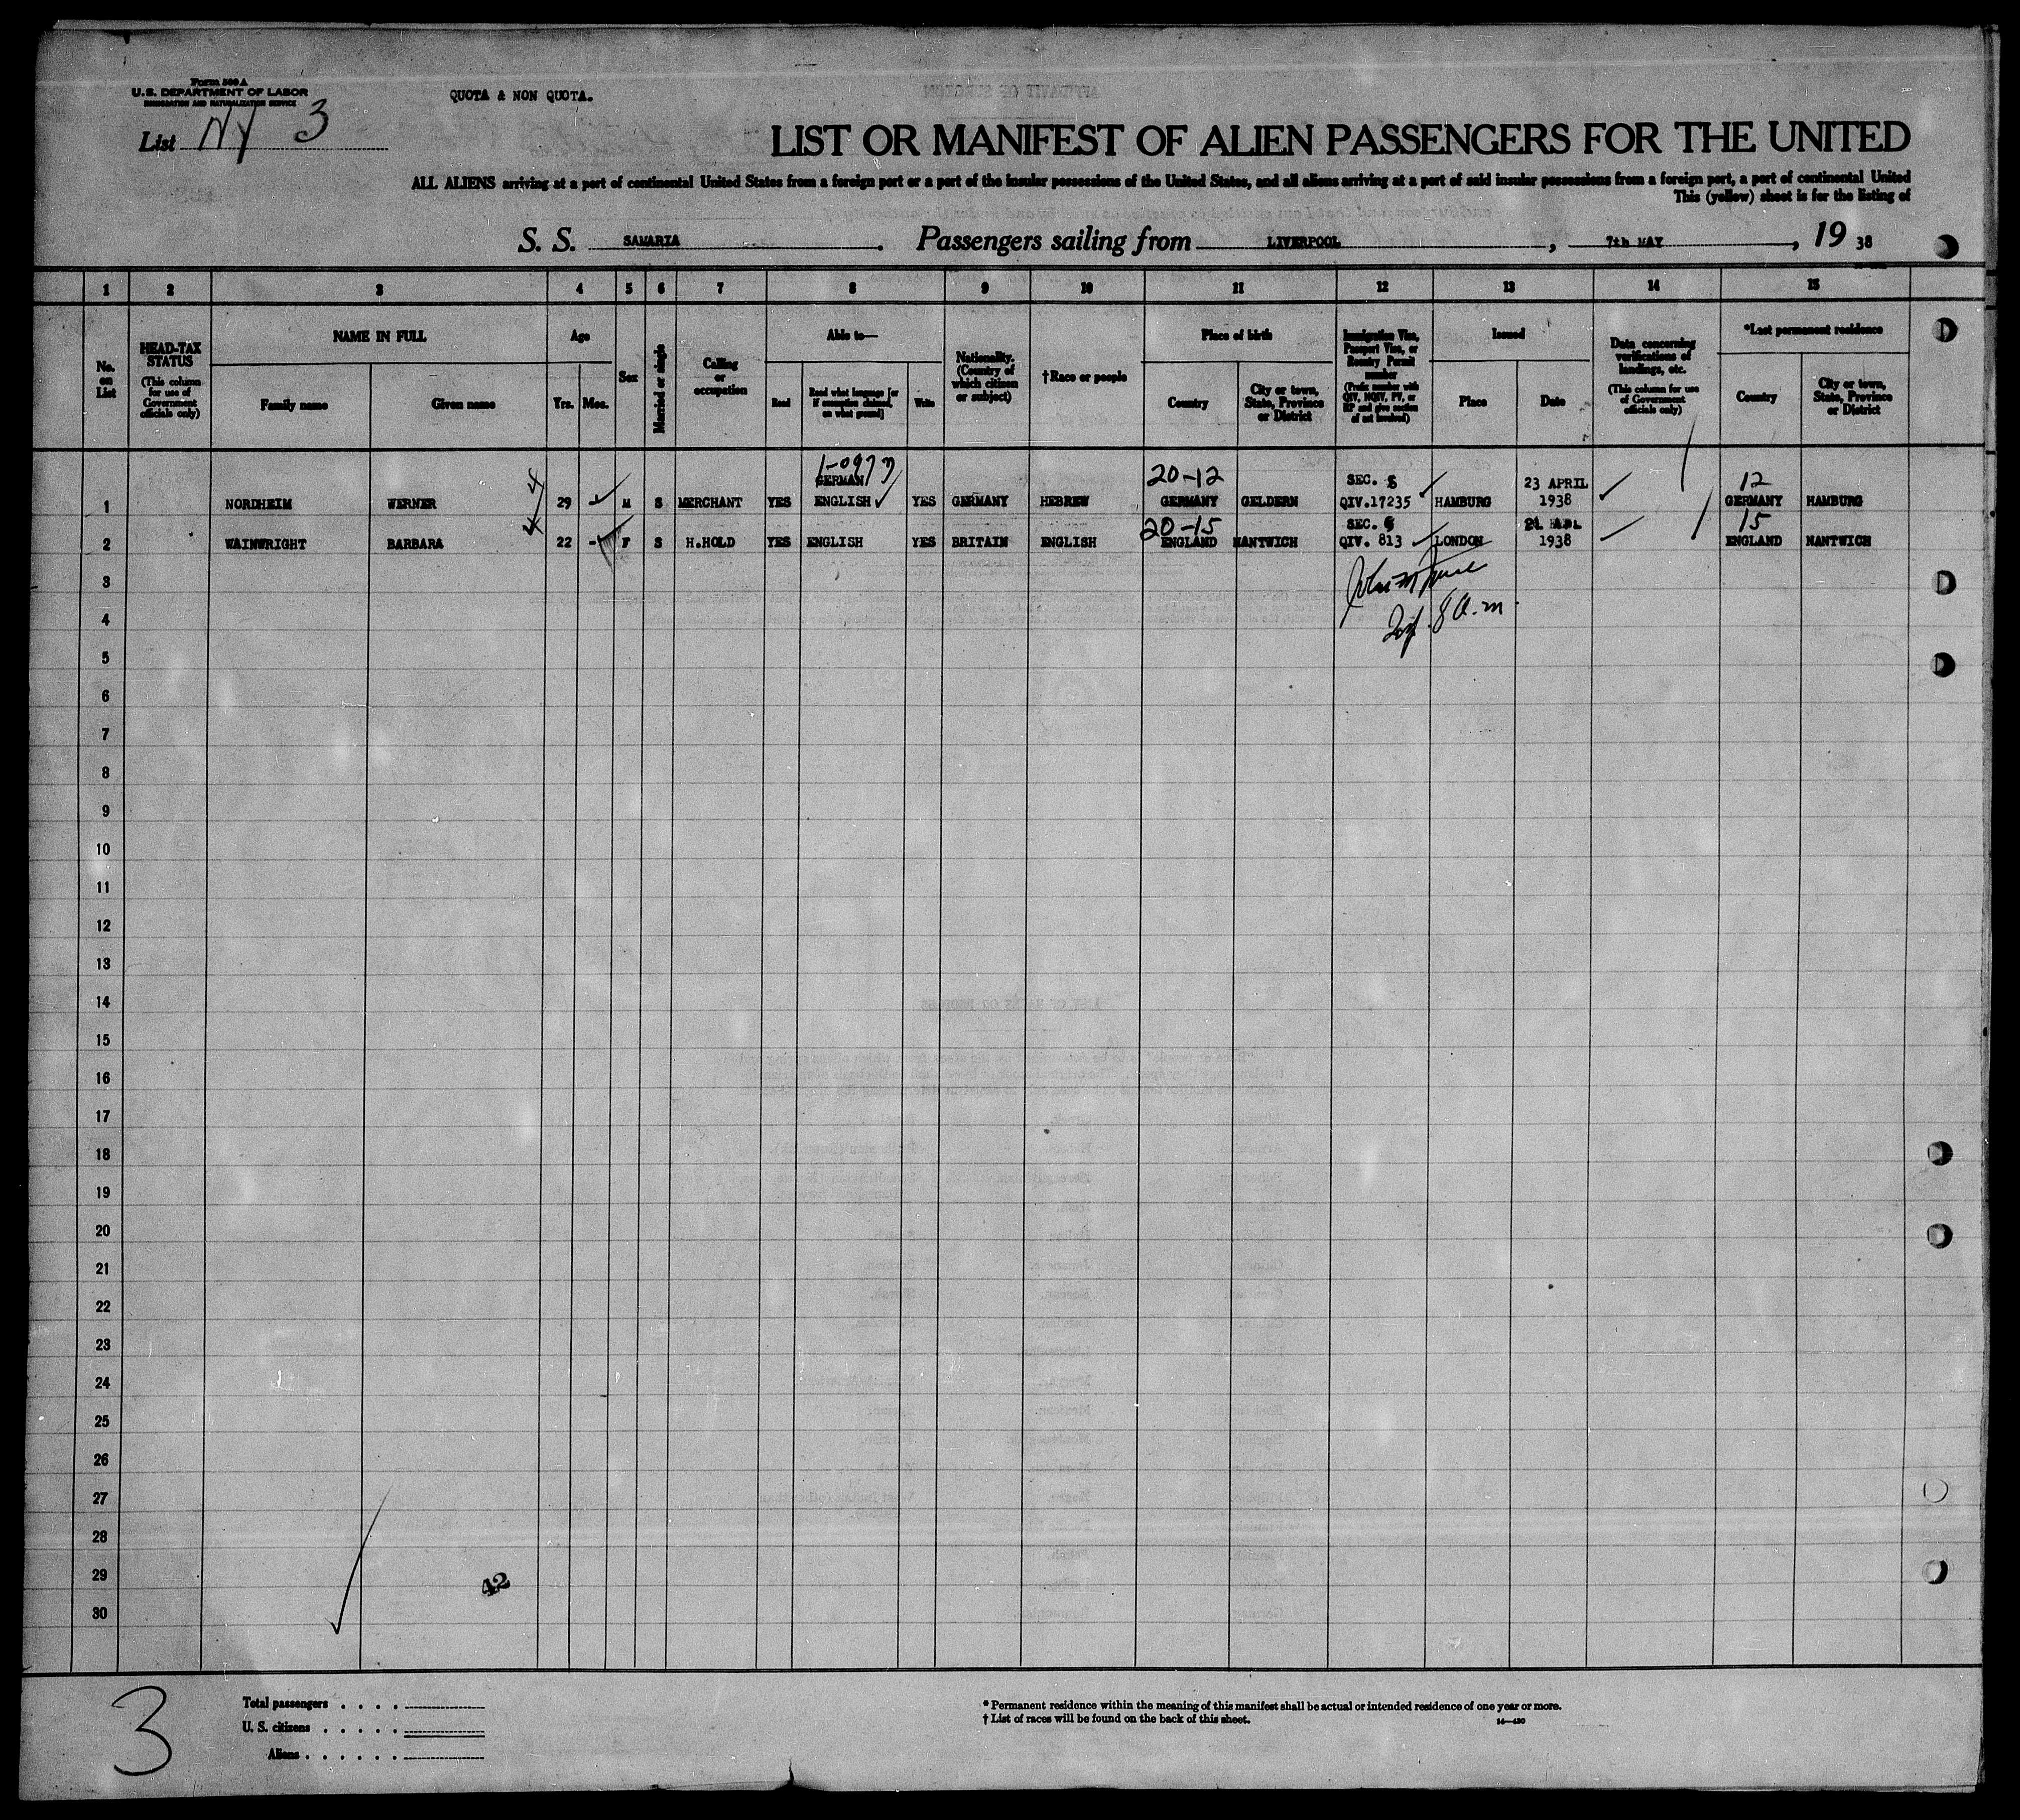 Form 500 A
U.S. DEPARTMENT OF LABOR
IMMIGRATION AND NATURALIZATION SERVICE
QUOTA & NON QUOTA.
List NY 3
LIST OR MANIFEST OF ALIEN PASSENGERS FOR THE UNITED
ALL ALIENS arriving at a port of continental United States from a foreign port or a port of the insular possessions of the United States, and all aliens arriving at a port of said insular possessions from a foreign port, a port of continental United
This (yellow) sheet is for the listing of
S. S. SAMARIA . Passengers sailing from LIVERPOOL , 7th MAY , 19 38
1 2 3 4 5 6 7 8 9 10 11 12 13 14 15
No. on List
HEAD-TAX STATUS (This column for use of Government officials only)
NAME IN FULL
Family name Given name
Age
Yrs. Mos.
Sex
Married or single
Calling or occupation
Able to—
Read Read what language [or if exemption claimed, on what ground] Write
Nationality. (Country of which citizen or subject)
†Race or people
Place of birth
Country City or town, State, Province or District
Immigration Visa, Passport Visa, or Reentry Permit number (Prefix number with QIV, NQIV, PV, or RP and give section of act involved)
Issued
Place Date
Data concerning verifications of landings, etc. (This column for use of Government officials only)
*Last permanent residence
Country City or town, State, Province or District
20-12 12
GERMAN SEC. 5 23 APRIL
1 NORDHEIM WERNER 29 M S MERCHANT YES ENGLISH YES GERMANY HEBREW GERMANY GELDERN QIV.17235 HAMBURG 1938 GERMANY HAMBURG
20-15 SEC. 15
2 WAINWRIGHT BARBARA 22 - F S H.HOLD YES ENGLISH YES BRITAIN ENGLISH ENGLAND NANTWICH QIV. 813 LONDON 1938 ENGLAND NANTWICH
3
4
5
6
7
8
9
10
11
12
13
14
15
16
17
18
19
20
21
22
23
24
25
26
27
28
29
30
42
3
Total passengers . . . .
U. S. citizens . . . . .
Aliens . . . . . .
* Permanent residence within the meaning of this manifest shall be actual or intended residence of one year or more.
† List of races will be found on the back of this sheet.
14—430